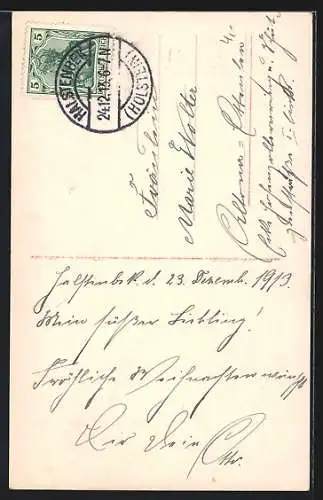 5 5
HALSTENBEK
24.12.13. 6-7 N
(HOLSTEIN)
Fräulein
Marie Wolter
Altona - Ottensen
Halstenbek. d. 23. Dezemb. 1913.
Mein süßer Liebling!
Fröhliche Weihnachten wünscht
Dir Dein
Otto.